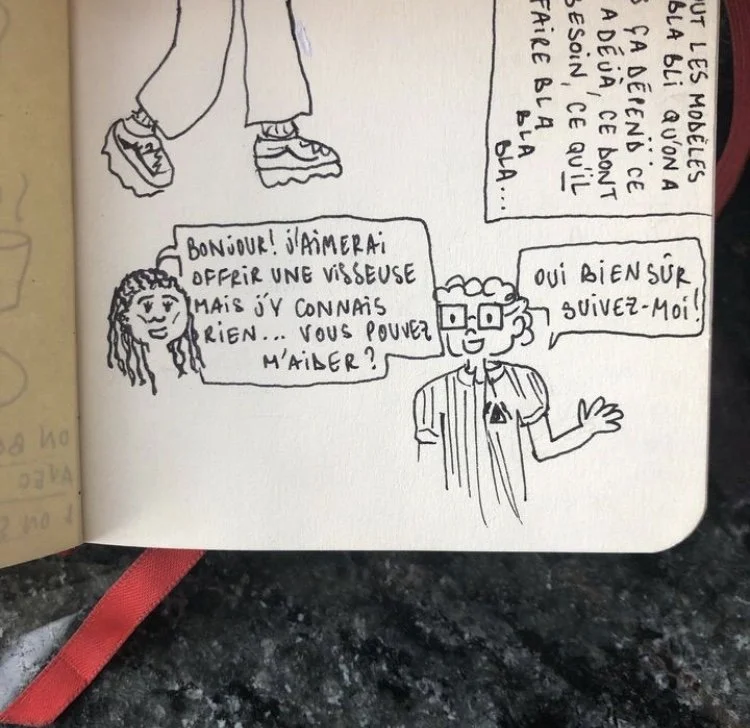 LES MODÈLES
BLA BLI QU'ON A
ÇA DÉPEND CE
A DÉJÀ, CE DONT
BESOIN, CE QU'IL
FAIRE BLA
BLA
BLA...
BONJOUR! J'AIMERAI
OFFRIR UNE VISSEUSE
MAIS J'Y CONNAIS
RIEN... VOUS POUVEZ
M'AIDER?
OUI BIEN SÛR
SUIVEZ-MOI!